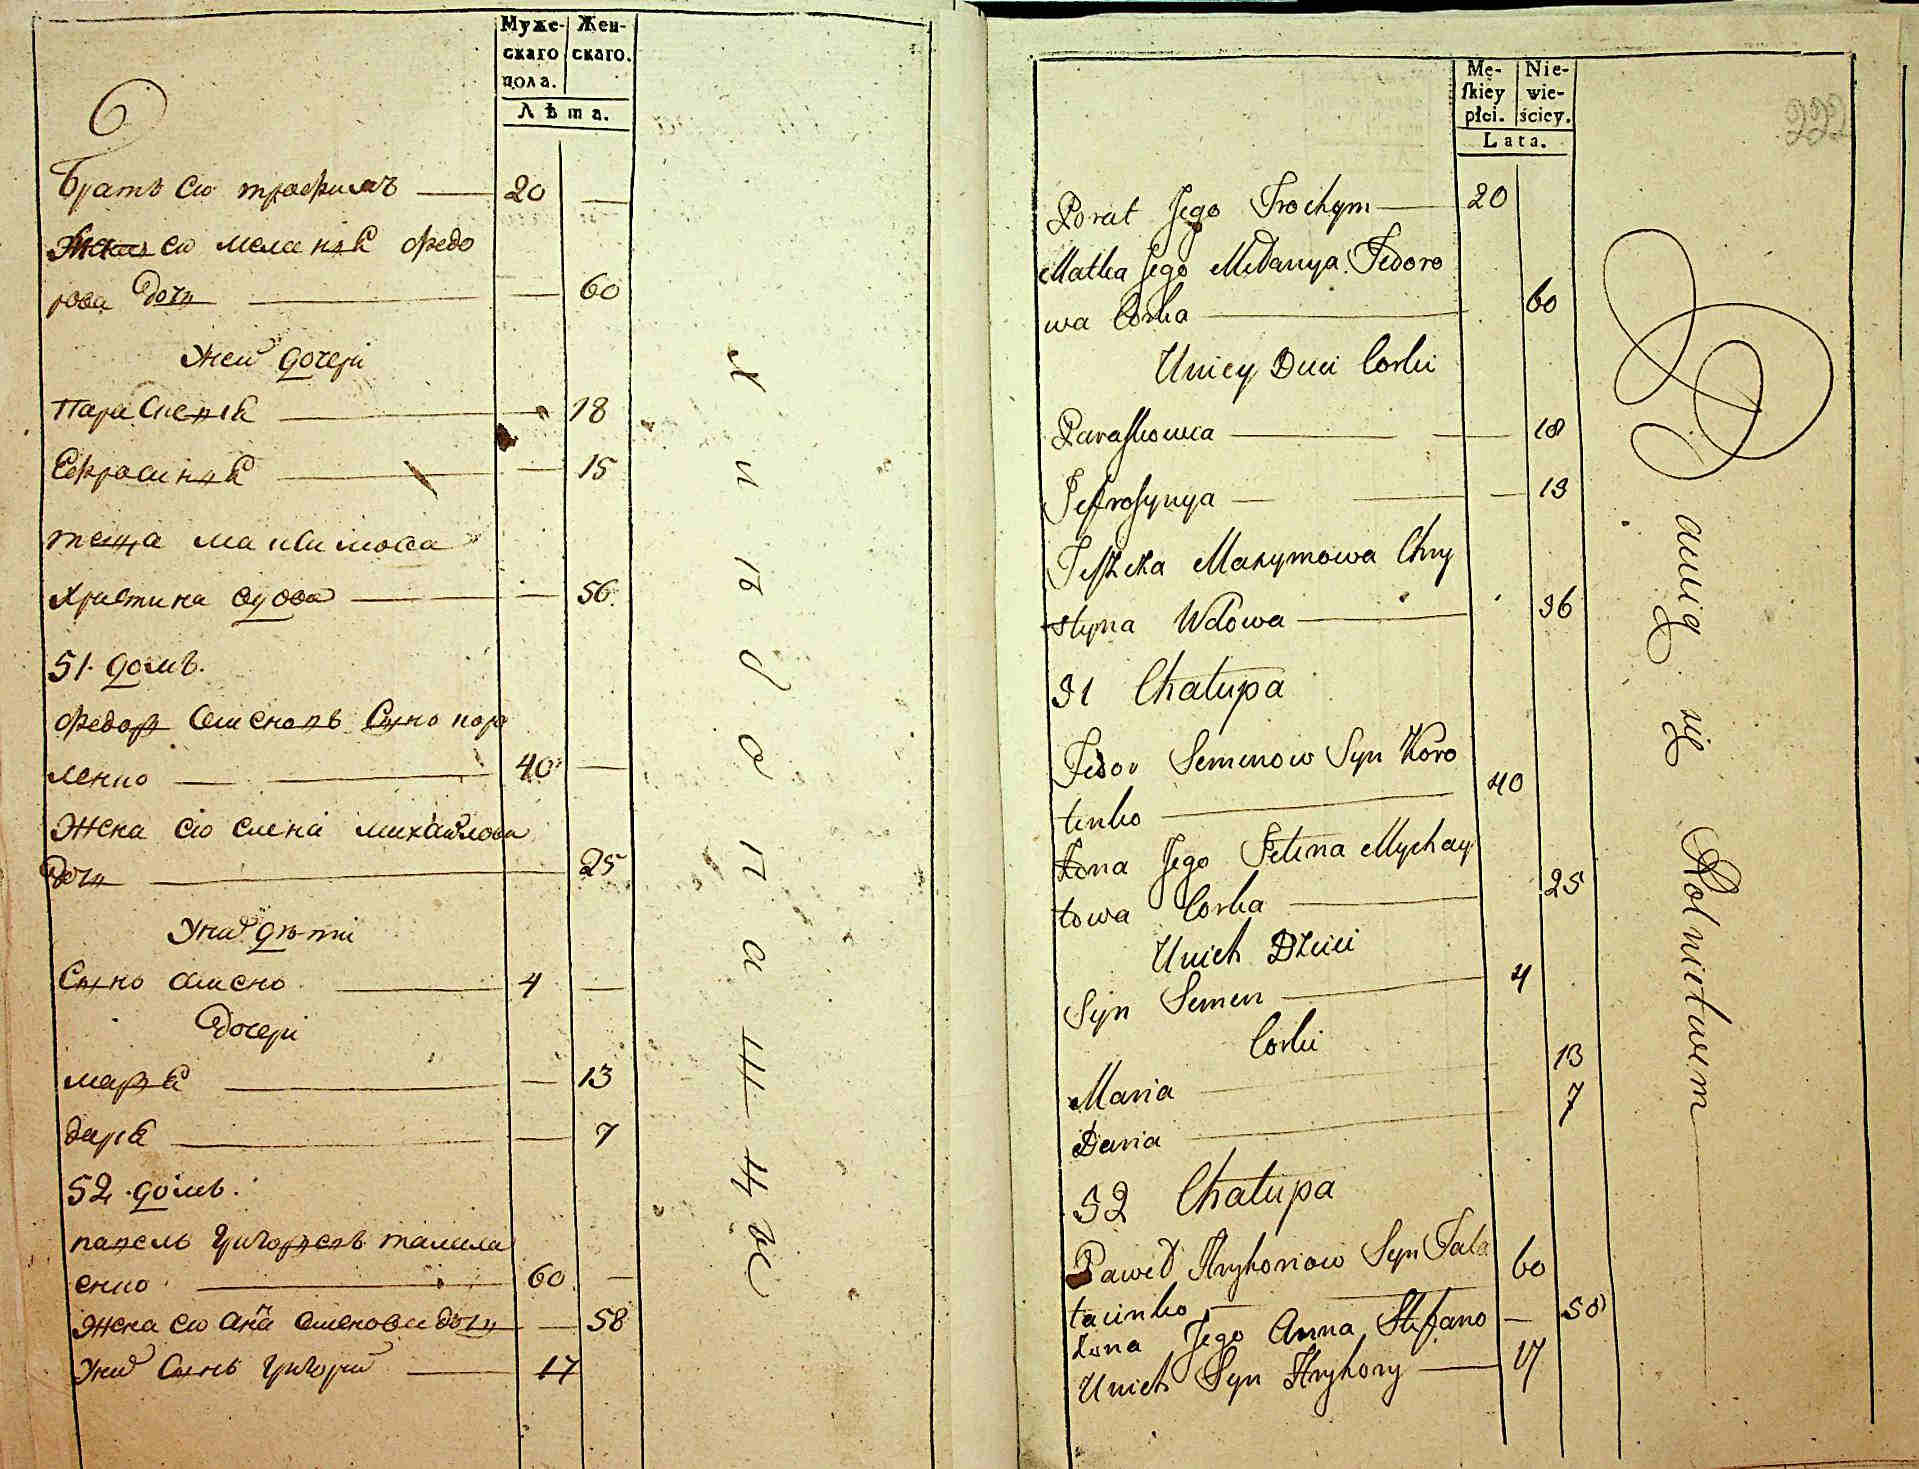 Муже-
скаго
пола.
Жен-
скаго.
Лѣта.
Братъ єго трофимъ 20
єго меланія федо
рова дочь 60
Унеи дочери
Параскевія 18
Єфросинія 15
теща максимова
Христина вдова 56
51. домъ.
федоръ семеновъ Синъ коро
ленко 40
Жена єго елена михайлова
дочь 25
Уних дѣти
Синъ семенъ 4
дочери
марія 13
дарія 7
52 домъ.
павелъ григориевъ талала
енко 60
Жена єго анна семенова дочь 58
Уних Синъ григорий 17
Хлѣбопашцы
Mę-
skiey
płci.
Nie-
wie-
ściey.
Lata.
222
Borat Jego Trochym 20
Matka Jego Melanya Fedoro
wa Corka 60
Uniey Dwi Corki
Paraskowia 18
Jefrosynya 15
Teszcza Maxymowa Chry
styna Wdowa 56
51 Chałupa
Fedor Semenow Syn Koro
tenko 40
Żona Jego Jelena Mychay
łowa Corka 25
Unich Dzieci
Syn Semen 4
Corki
Maria 13
Daria 7
52 Chałupa
Paweł Hryhoriow Syn Tala
łaienko 60
Żona Jego Anna Stefano 58
Unich Syn Hryhory 17
Bawią się Rolnictwem